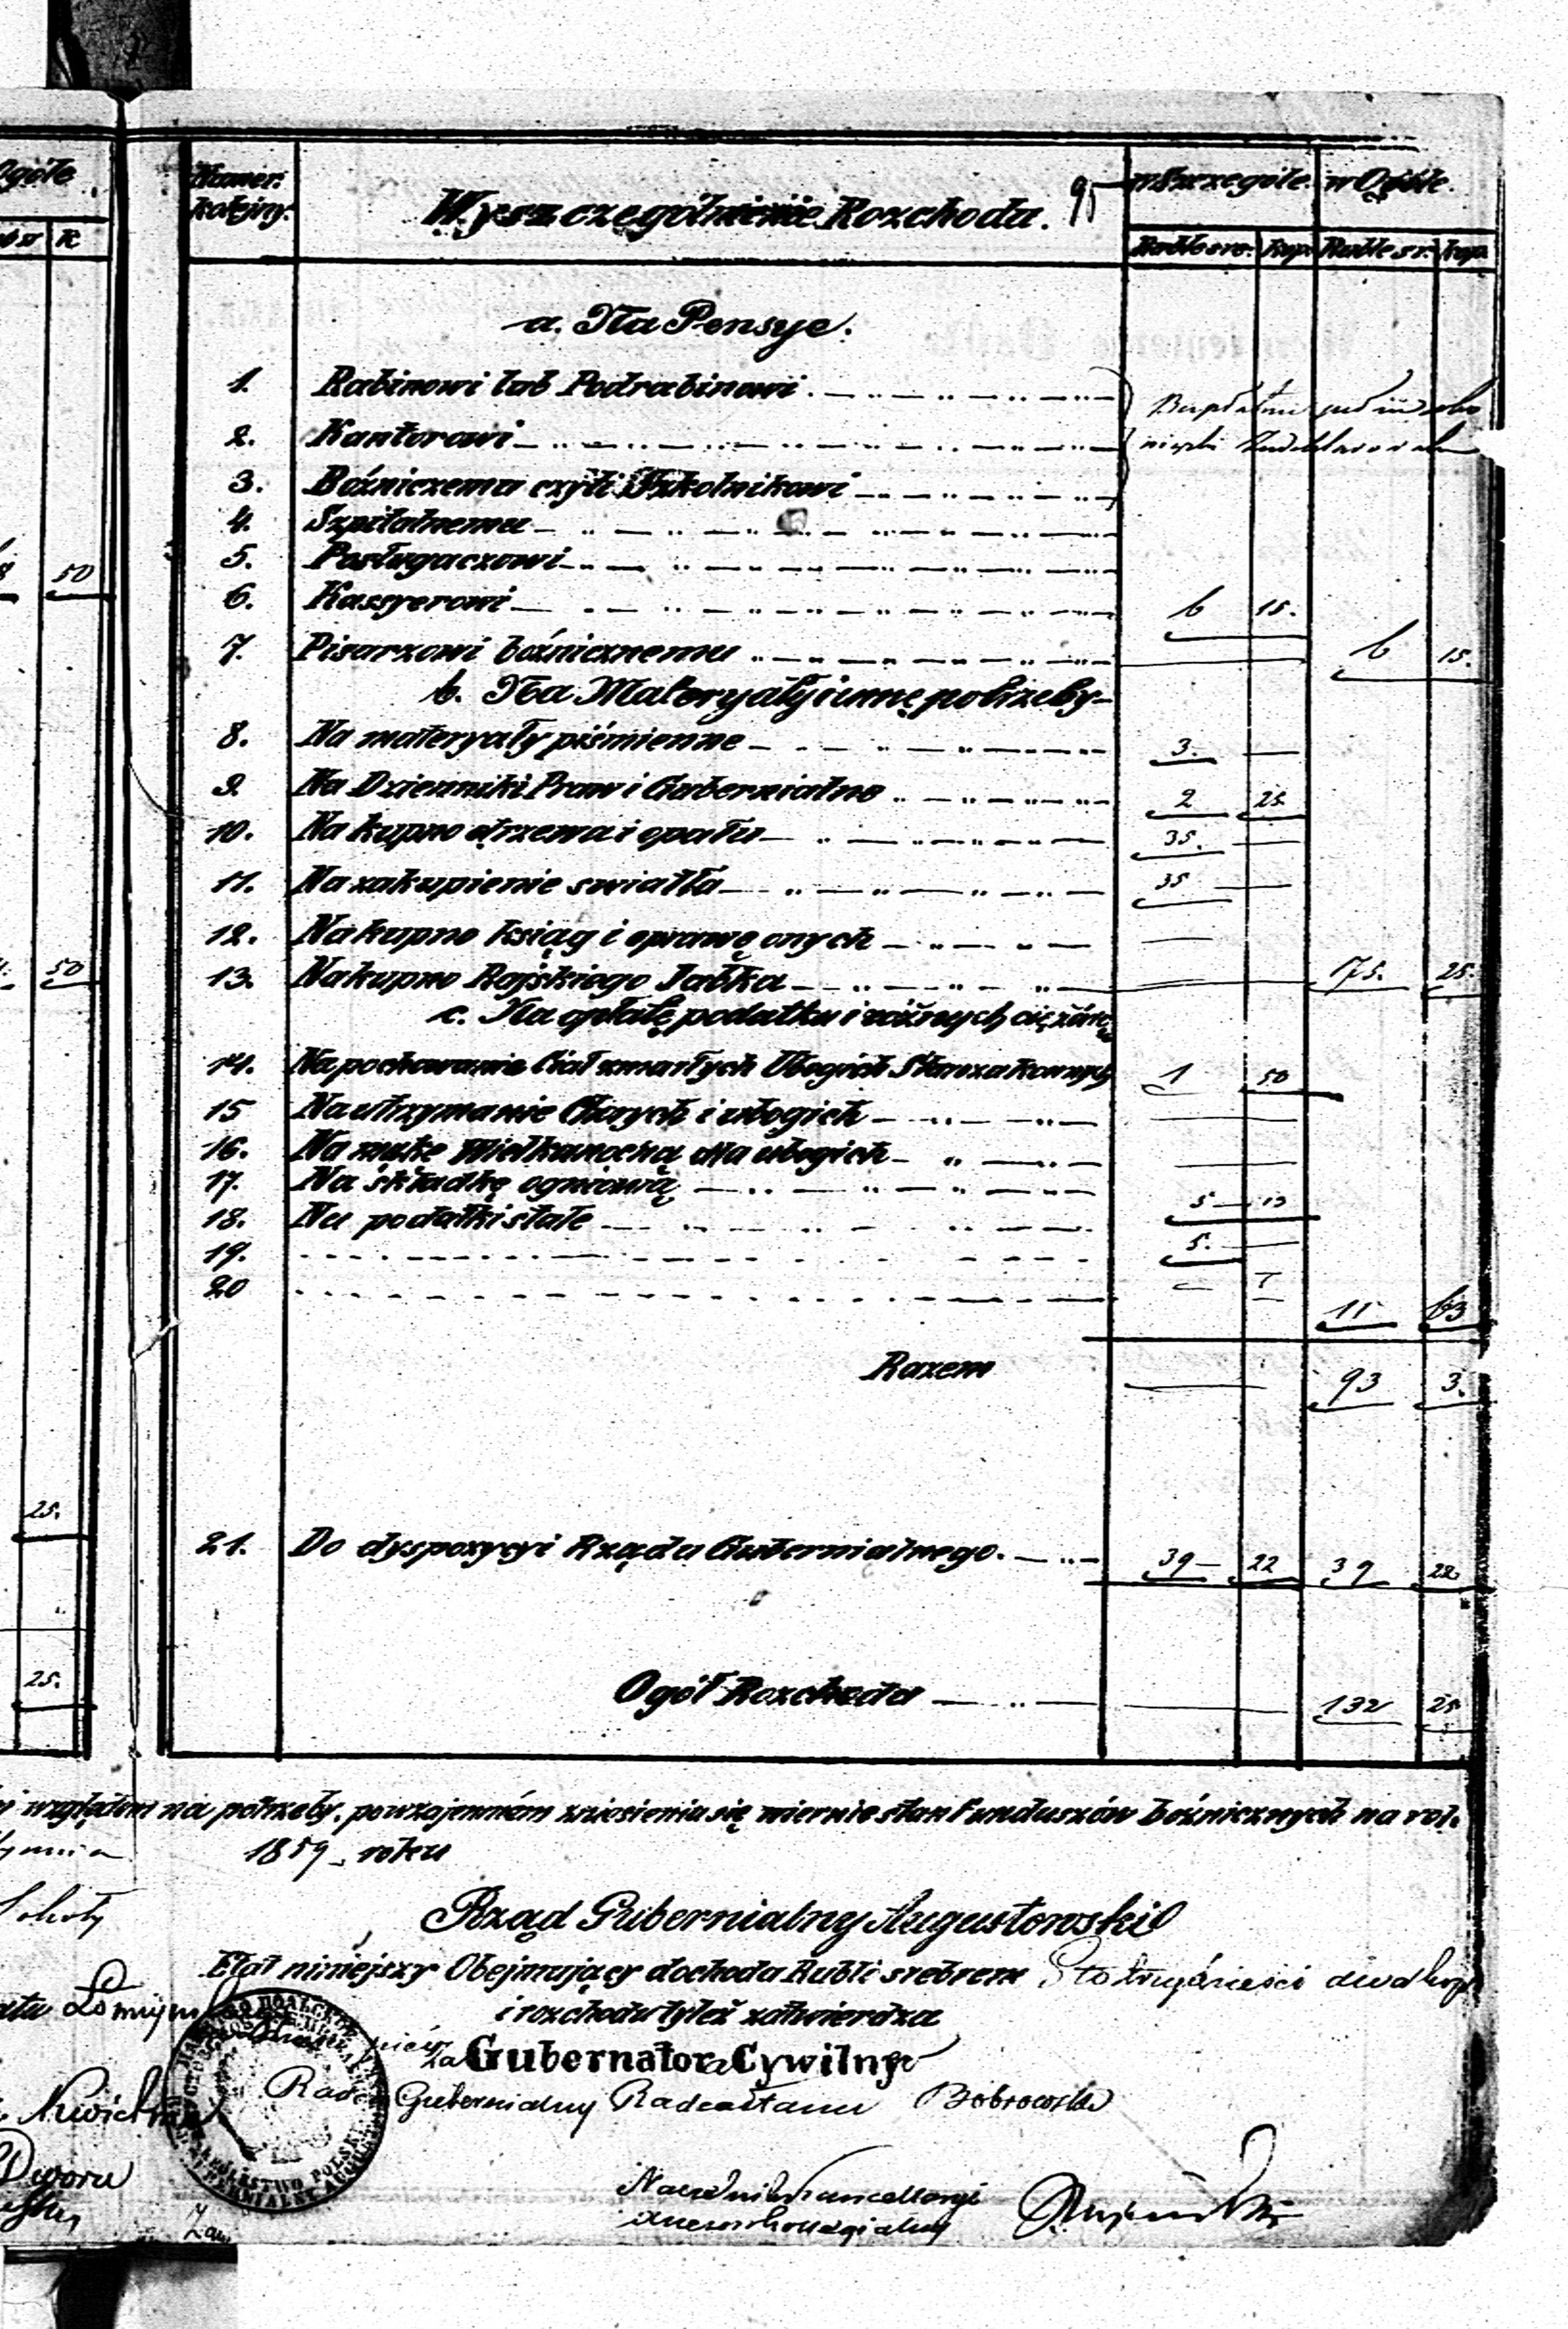 Ogóle
K
50
50
25.
25.
Numer kolejny.
Wyszczególnienie Rozchodu. 95
w Szczególe. w Ogóle.
Ruble sre. Kop. Ruble sr. Kop.
a. Na Pensye.
1. Rabinowi lub Podrabinowi
2. Kantorowi
3. Bóżniczemu czyli Szkolnikowi
4. Szpitalnemu
5. Posługaczowi
6. Kassyerowi 6 15.
7. Pisarzowi bóżnicznemu 6 15.
b. Na Materyały i inne potrzeby
8. Na materyały piśmienne 3.
9. Na Dzienniki Praw i Gubernialne 2 25
10. Na kupno drzewa i opału 35.
11. Na zakupienie swiatła 35
12. Na kupno ksiąg i oprawę onych
13. Na kupno Rajskiego Jabłka 175. 25.
c. Na opłatę podatku i różnych ciężarów
14. Na pochowanie Ciał zmarłych Ubogich Starozakonnych 1 50
15 Na utrzymanie Chorych i ubogich
16. Na mąkę Wielkanocną dla ubogich
17. Na składkę ogniową 5 13
18. Na podatki stałe 5.
19.
20
11 63
Razem 93 3.
21. Do dyspozycyi Rządu Gubernialnego. 39 22 39 22
Ogół Rozchodu 132 25
względem na potrzeby, powzajemném zniesieniu się miernie stan Funduszów bóżnicznych na rok.
1859 roku
Rząd Gubernialny Augustowski
Etat niniejszy Obejmujący dochodu Rubli srebrem Sto trzydzieści dwa kop
i rozchodu tyleż zatwierdza
za Gubernatora Cywilnego
Radca Gubernialny Radca Stanu Bobrowski
Naczelnik Kancellaryi
Assessor Kollegialny
Dworu
KRÓLESTWO POLSKIE